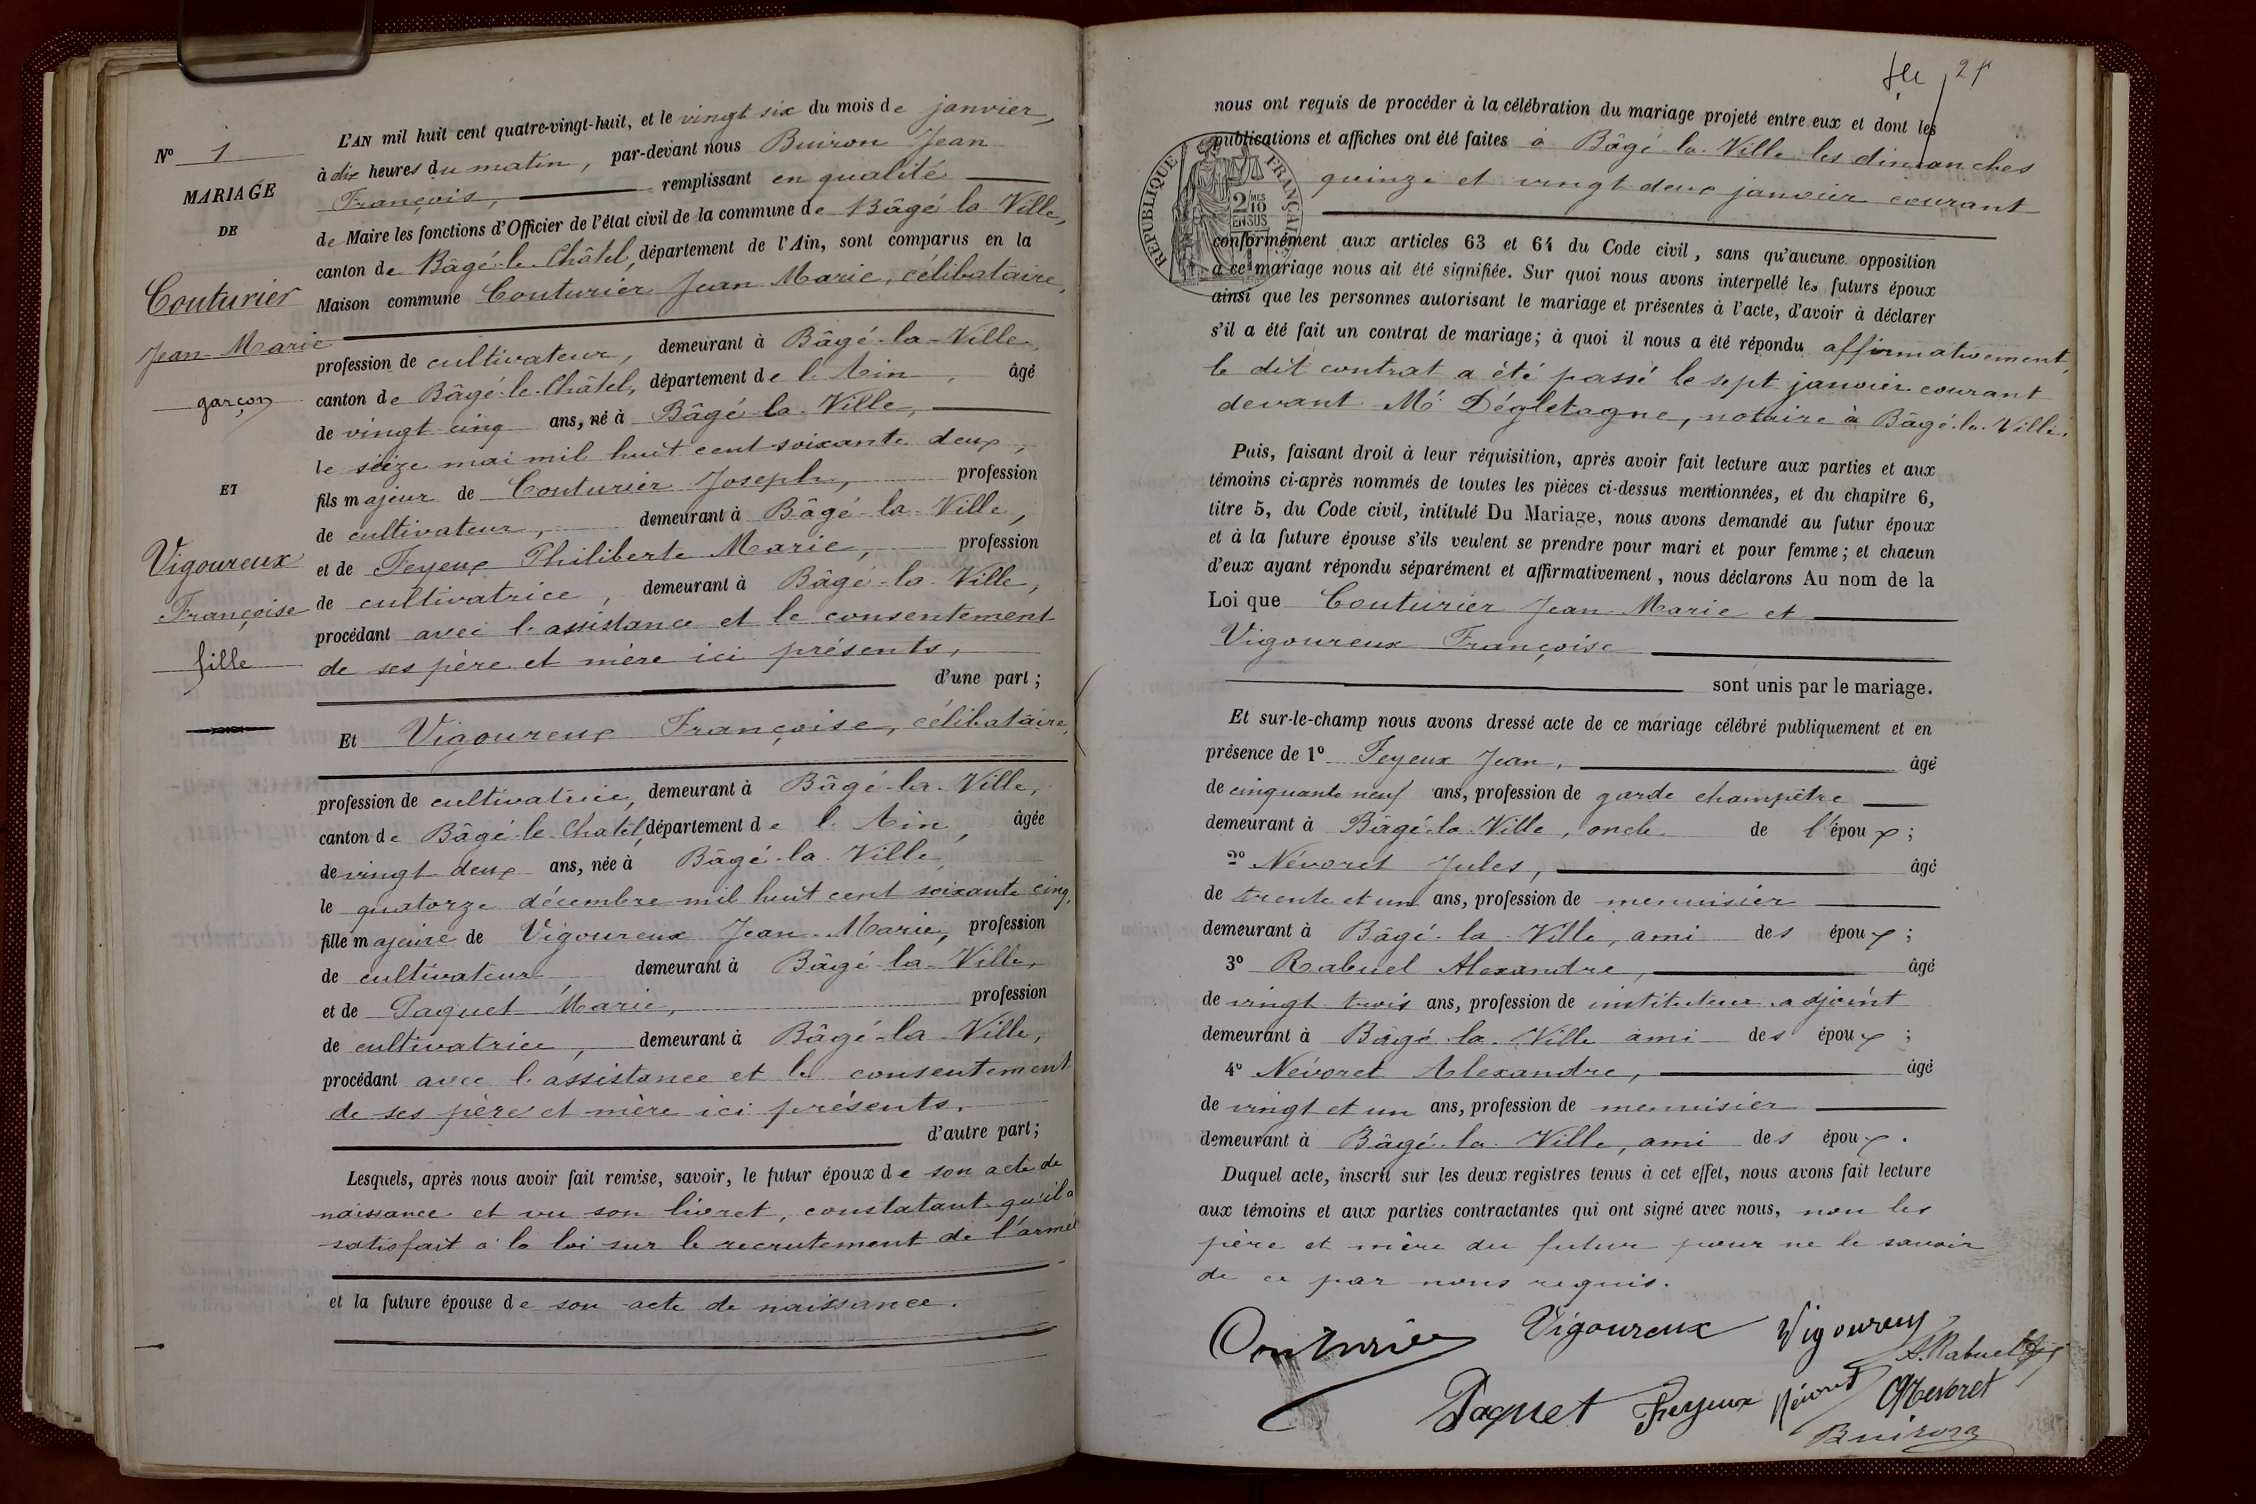 N° 1
MARIAGE
DE
Couturier
Jean-Marie
garçon
ET
Vigoureux
Françoise
fille
L'AN mil huit cent quatre-vingt-huit, et le vingt six du mois de janvier,
à dix heures du matin, par-devant nous Buiron Jean
François, remplissant en qualité
de Maire les fonctions d'Officier de l'état civil de la commune de Bâgé la Ville,
canton de Bâgé-le-Châtel, département de l'Ain, sont comparus en la
Maison commune Couturier Jean Marie, célibataire,
profession de cultivateur, demeurant à Bâgé-la-Ville,
canton de Bâgé-le-Châtel, département de l'Ain, âgé
de vingt cinq ans, né à Bâgé-la-Ville,
le seize mai mil huit cent soixante deux,
fils majeur de Couturier Joseph, profession
de cultivateur, demeurant à Bâgé-la-Ville,
et de Feyeux Philiberte Marie, profession
de cultivatrice, demeurant à Bâgé-la-Ville,
procédant avec l'assistance et le consentement
de ses père et mère ici présents,
d'une part;
Et Vigoureux Françoise, célibataire,
profession de cultivatrice, demeurant à Bâgé-la-Ville,
canton de Bâgé-le-Chatel, département de l'Ain, âgée
de vingt deux ans, née à Bâgé-la-Ville
le quatorze décembre mil huit cent soixante cinq,
fille majeure de Vigoureux Jean-Marie, profession
de cultivateur demeurant à Bâgé-la-Ville,
et de Paquet Marie, profession
de cultivatrice, demeurant à Bâgé-la-Ville,
procédant avec l'assistance et le consentement
de ses père et mère ici présents.
d'autre part;
Lesquels, après nous avoir fait remise, savoir, le futur époux de son acte de
naissance et vu son livret, constatant qu'il a
satisfait à la loi sur le recrutement de l'armée
et la future épouse de son acte de naissance.
nous ont requis de procéder à la célébration du mariage projeté entre eux et dont les
publications et affiches ont été faites à Bâgé-la-Ville les dimanches
quinze et vingt deux janvier courant
RÉPUBLIQUE FRANÇAISE
2/10 MES
EN SUS
conformément aux articles 63 et 64 du Code civil, sans qu'aucune opposition
à ce mariage nous ait été signifiée. Sur quoi nous avons interpellé les futurs époux
ainsi que les personnes autorisant le mariage et présentes à l'acte, d'avoir à déclarer
s'il a été fait un contrat de mariage; à quoi il nous a été répondu affirmativement,
le dit contrat a été passé le sept janvier courant
devant Me Dégletagne, notaire à Bâgé-la-Ville.
Puis, faisant droit à leur réquisition, après avoir fait lecture aux parties et aux
témoins ci-après nommés de toutes les pièces ci-dessus mentionnées, et du chapitre 6,
titre 5, du Code civil, intitulé Du Mariage, nous avons demandé au futur époux
et à la future épouse s'ils veulent se prendre pour mari et pour femme; et chacun
d'eux ayant répondu séparément et affirmativement, nous déclarons Au nom de la
Loi que Couturier Jean-Marie et
Vigoureux Françoise
sont unis par le mariage.
Et sur-le-champ nous avons dressé acte de ce mariage célébré publiquement et en
présence de 1° Feyeux Jean, âgé
de cinquante neuf ans, profession de garde champêtre
demeurant à Bâgé-la-Ville, oncle de l'époux;
2° Névoret Jules, âgé
de trente et un ans, profession de menuisier
demeurant à Bâgé-la-Ville, ami des époux;
3° Rabuel Alexandre, âgé
de vingt trois ans, profession de instituteur adjoint
demeurant à Bâgé-la-Ville ami des époux;
4° Névoret Alexandre, âgé
de vingt et un ans, profession de menuisier
demeurant à Bâgé-la-Ville, ami des époux.
Duquel acte, inscrit sur les deux registres tenus à cet effet, nous avons fait lecture
aux témoins et aux parties contractantes qui ont signé avec nous, non les
père et mère du futur pour ne le savoir
de ce par nous requis.
Couturier Vigoureux Vigoureux
A. Rabuel
Paquet Feyeux Névoret Nevoret
Buiron